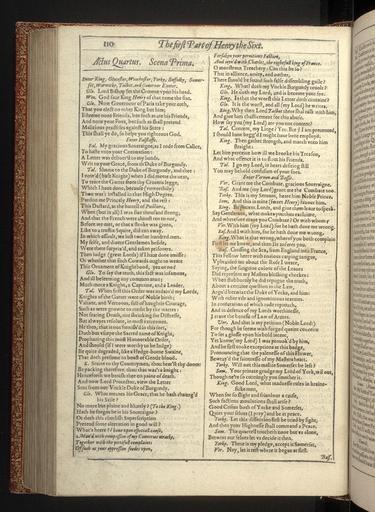 110 The first Part of Henry the Sixt.
Actus Quartus. Scena Prima.
Enter King, Glocester, Winchester, Yorke, Suffolke, Somer-
set, Warwicke, Talbot, and Governor Exeter.
Glo. Lord Bishop set the Crowne upon his head.
Win. God save King Henry of that name the sixt.
Glo. Now Governour of Paris take your oath,
That you elect no other King but him;
Esteeme none Friends, but such as are his Friends,
And none your Foes, but such as shall pretend
Malicious practises against his State:
This shall ye do, so helpe you righteous God.
Enter Falstaffe.
Fal. My gracious Soveraigne, as I rode from Calice,
To haste unto your Coronation:
A Letter was deliver'd to my hands,
Writ to your Grace, from th'Duke of Burgundy.
Tal. Shame to the Duke of Burgundy, and thee:
To teare the Garter from thy Cravens legge,
Which I have done, because (unworthily)
Thou was't installed in that High Degree.
Pardon me Princely Henry, and the rest:
This Dastard, at the battell of Poictiers,
Before we met, or that a stroke was given,
Like to a trustie Squire, did run away.
In which assault, we lost twelve hundred men.
My selfe, and divers Gentlemen beside,
Were there surpriz'd, and taken prisoners.
Then judge (great Lords) if I have done amisse:
Or whether that such Cowards ought to weare
This Ornament of Knighthood, yea or no?
Glo. To say the truth, this fact was infamous,
And ill beseeming any common man;
Much more a Knight, a Captaine, and a Leader.
Tal. When first this Order was ordain'd my Lords,
Knights of the Garter were of Noble birth;
Valiant, and Vertuous, full of haughtie Courage,
Such as were growne to credit by the warres:
Not fearing Death, nor shrinking for Distresse,
But alwayes resolute, in most extreames.
He then, that is not furnish'd in this sort,
Doth but usurpe the Sacred name of Knight,
Prophaning this most Honourable Order,
And should (if I were worthy to be Judge)
Be quite degraded, like a Hedge-borne Swaine,
That doth presume to boast of Gentle blood.
K. Staine to thy Countrymen, thou hear'st thy doom:
Be packing therefore, thou that was't a knight:
Henceforth we banish thee on paine of death.
And now Lord Protector, view the Letter
Sent from our Vnckle Duke of Burgundy.
Glo. What meanes his Grace, that he hath chaung'd
his Stile?
No more but plaine and bluntly? (To the King.)
Hath he forgot he is his Soveraigne?
Or doth this churlish Superscription
Pretend some alteration in good will?
What's heere? I have upon especiall cause,
Mov'd with compassion of my Countries wracke,
Together with the pittifull complaints
Of such as your oppression feedes upon,
Forsaken your pernitious Faction,
And joyn'd with Charles, the rightfull king of France.
O monstrous Treachery: Can this be so?
That in alliance, amity, and oathes,
There should be found such false dissembling guile?
King. What? doth my Vnckle Burgundy revolt?
Glo. He doth my Lord, and is become your foe.
King. Is that the worst this Letter doth containe?
Glo. It is the worst, and all (my Lord) he writes.
King. Why then Lord Talbot there shall talk with him,
And give him chasticement for this abuse.
How say you (my Lord) are you not content?
Tal. Content, my Liege? Yes: But I am prevented,
I should have begg'd I might have bene employd.
King. Then gather strength, and march unto him
straight:
Let him perceive how ill we brooke his Treason,
And what offence it is to flout his Friends.
Tal. I go my Lord, in heart desiring still
You may behold confusion of your foes.
Enter Vernon and Basset.
Ver. Grant me the Combate, gracious Soveraigne.
Bas. And me (my Lord) grant me the Combate too.
Yorke. This is my Servant, heare him Noble Prince.
Som. And this is mine (sweet Henry) favour him.
King. Be patient Lords, and give them leave to speak.
Say Gentlemen, what makes you thus exclaime,
And wherefore crave you Combate? Or with whom?
Ver. With him (my Lord) for he hath done me wrong.
Bas. And I with him, for he hath done me wrong.
King. What is that wrong, whereof you both complain
First let me know, and then Ile answer you.
Bas. Crossing the Sea, from England into France,
This Fellow heere with envious carping tongue,
Vpbraided me about the Rose I weare,
Saying, the sanguine colour of the Leaves
Did represent my Masters blushing cheekes:
When stubbornly he did repugne the truth,
About a certaine question in the Law,
Argu'd betwixt the Duke of Yorke, and him:
With other vile and ignominious tearmes.
In confutation of which rude reproach,
And in defence of my Lords worthinesse,
I crave the benefit of Law of Armes.
Ver. And that is my petition (Noble Lord:)
For though he seeme with forged queint conceite
To set a glosse upon his bold intent,
Yet know (my Lord) I was provok'd by him,
And he first tooke exceptions at this badge,
Pronouncing that the palenesse of this Flower,
Bewray'd the faintnesse of my Masters heart.
Yorke. Will not this malice Somerset be left?
Som. Your private grudge my Lord of York, wil out,
Though ne're so cunningly you smother it.
King. Good Lord, what madnesse rules in braine-
sicke men,
When for so slight and frivolous a cause,
Such factious æmulations shall arise?
Good Cosins both of Yorke and Somerset,
Quiet your selves (I pray) and be at peace.
Yorke. Let this dissention first be tried by fight,
And then your Highnesse shall command a Peace.
Som. The quarrell toucheth none but us alone,
Betwixt our selves let us decide it then.
Yorke. There is my pledge, accept it Somerset.
Ver. Nay, let it rest where it began at first.
Bas.